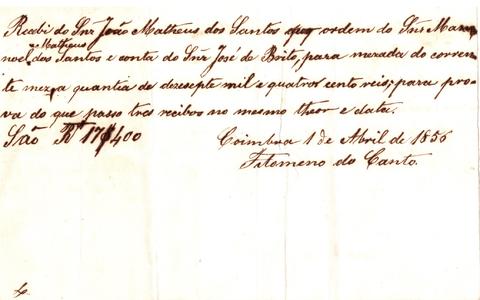 Recebi do Snr João Matheus dos Santos por ordem do Snr Ma
noel Matheus dos Santos e conta do Snr José de Brito, para mezada do corren
te mez, a quantia de dezesepte mil e quatros cento reis; para pro
va do que passo tres recibos no mesmo theor e data.
São Rs 17$400
Coimbra 1 de Abril de 1856
Filomeno do Canto.